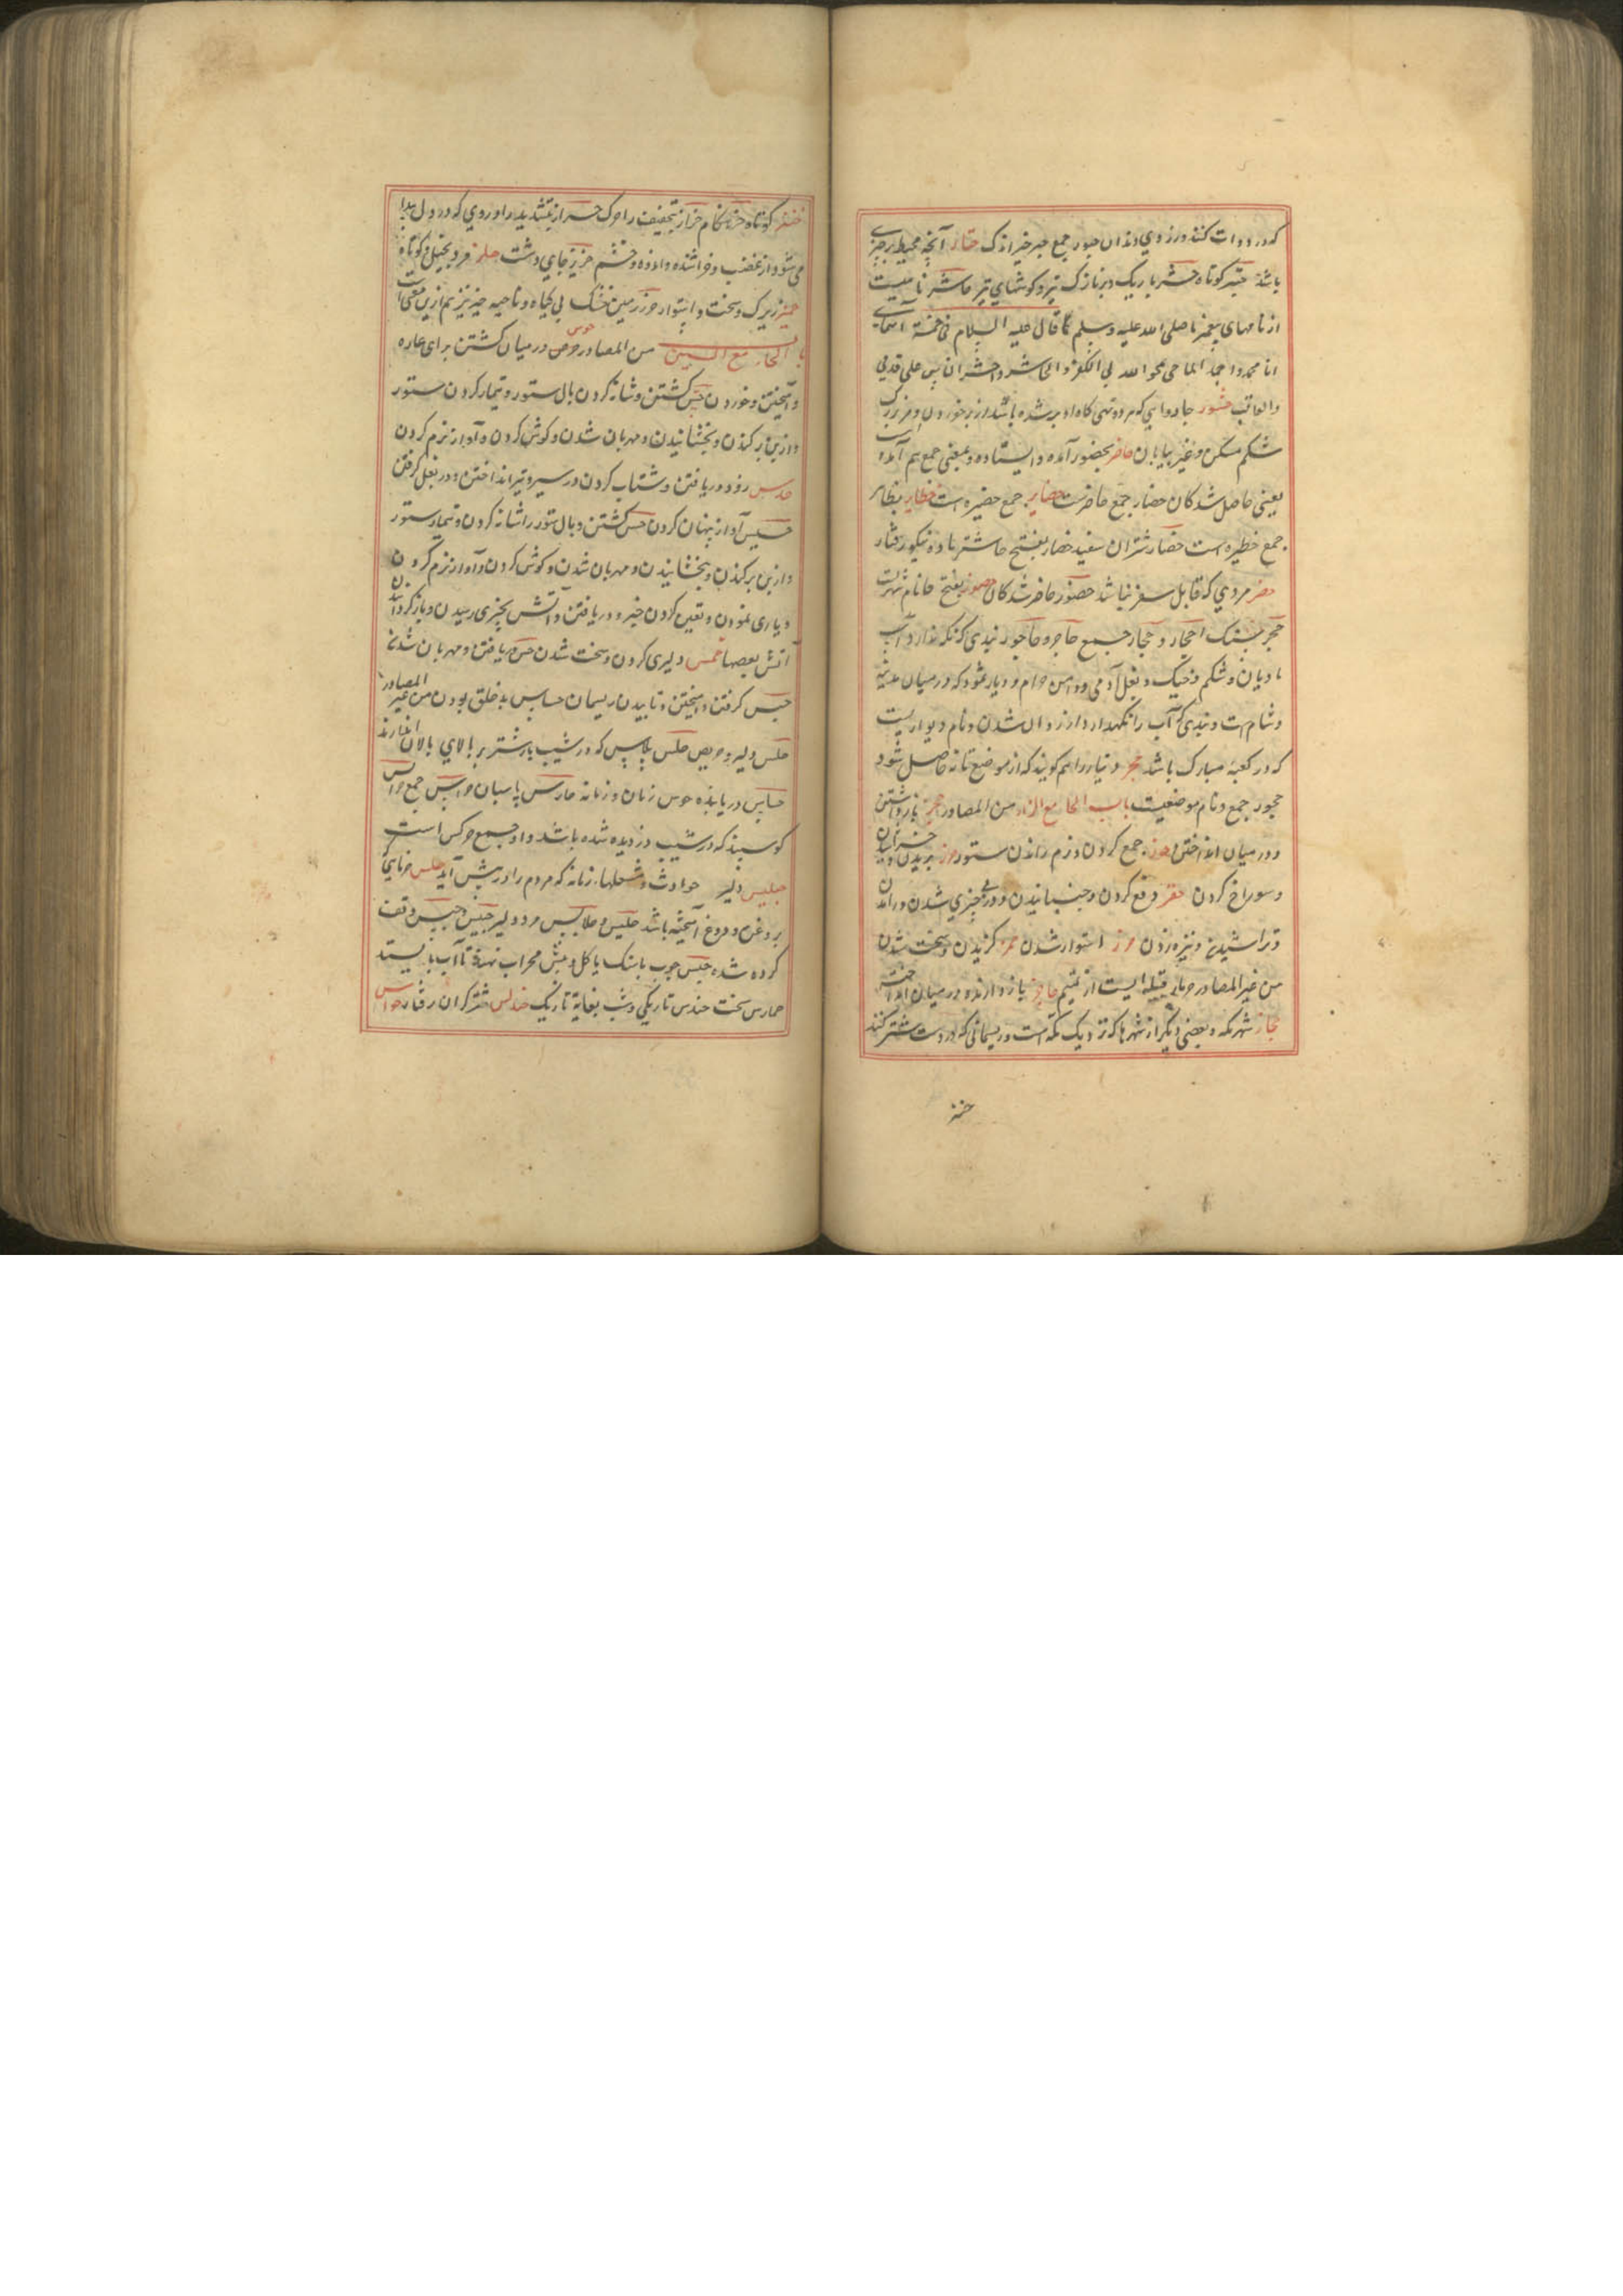 که در دوات کنند ورزوی دندان حبور جمع حبر خبر اندک حتار آنچه محیط بر چیزی
باشد حبتر کوتاه حشر باریک و پر نازک تیر و کوشهای تیز حاشر نامیست
از نامهای پیغمبر ما صلی الله علیه وسلم کما قال علیه السلام فی خمسة اسمای
انا محمد و احمد الماحی یمحو الله بی الکفر والحاشر واحشر الناس علی قدمی
والعاقب حشور جاروایی که هر دو تهی کاه او بر شده باشد از بر خوردن و مرد بزرک
شکم مسکن و غیر بیابان حاضر بحضور آمده و ایستاده و بمعنی جمع هم آمده است
یعنی حاصل شدکان حضار جمع حاضرست حضایر جمع حضیره است حظایر بظا
جمع حظیره است حضار شتران سفید حضار بفتح حا شتر ماده نیکو رفتار
حضر مردی که قابل سفر نباشد حضور حاضر شدکان حضور بفتح حا نام شهریست
حجر سنک احجار و حجار جمع حاجر و حاجور بندی که نکه دارد آب
مادیان و شکم و خیک و بغل آدمی و دامن حرام و دیار ثمود که در میان مدینه
و شام است و بندی که آب را نکهدارد از زوال شدن و نام دیواریست
که در کعبه مبارک باشد حجر و تیار را هم کویند که از موضع تانه حاصل شود
حجور جمع و نام موضعیست باب الحا مع الزاء من المصادر حجز بازداشتن
و در میان انداختن حوز جمع کردن و نرم راندن ستور حز بریدن و خراشیدن
و سوراخ کردن حفز دفع کردن و جنبانیدن و در پی چیزی شدن و راندن
و تراشیدن و نیزه زدن حرز استوار شدن حمز کزیدن و سخت شدن
من غیر المصادر حرماز قبیله ایست از تمیم حاجز بازدارنده در میان انداخته
حجاز شهر مکه و بعضی دیکر از شهرها که نزدیک مکه است و ریسمانی که در دست شتر کنند
کوتاه حزه هنکام حزاز بتخفیف را حرک حزاز بتشدید را و دردی که در دل پیدا
می شود از غضب و خراشنده و اندوه و خشم حزیز جای درشت حلز مرد بخیل و کوتاه
حمیز زیرک و سخت و استوار حرز زمین خشک بی کیاه و ناحیه حیز نیز هم ازین معنی است
باب الحاء مع السین من المصادر حوس در میان کشتن برای غاره
و آمیختن و خوردن حس کشتن و شانه کردن بال ستور و تیمار کردن ستور
و از بن برکندن و بخشانیدن و مهربان شدن و کوش کردن و آواز نرم کردن
حدس زود دریافتن و شتاب کردن در سیر و تیر انداختن و در بغل کرفتن
حسیس آواز پنهان کردن حس کشتن و بال ستور را شانه کردن و تیمار ستور
و از بن برکندن و بخشانیدن و مهربان شدن و کوش کردن و آواز نرم کردن
و یاری نمودن و یقین کردن خبر و دریافتن و آتش بچیزی رسیدن و باز کردانیدن
آتش بعصا حمس دلیری کردن و سخت شدن حس دریافتن و مهربان شدن
حبس کرفتن و آمیختن و تابیدن ریسمان حساس بدخلق بودن من غیر المصادر
حلس دلیر و حریص حلس پلاس که در شیب بار شتر بر بالای پالان اندازند
حساس دریابنده حوس زنان و زمانه حارس پاسبان حراس جمع حرایس
کوسپند که در شب دزدیده شده باشد واو جمع حرس است
دلیر حوادث و شعلها زمانه که مردم را در پیش آید حلس خرمایی که
بروغن و دوغ آمیخته باشد حلیس و حلابس مرد دلیر حبیس و حبس وقف
کرده شده حبس چوب یا سنک یا کل و پیش محراب نهند تا آب بایستد
حمارس سخت حندس تاریکی و شب بغایة تاریک حندلس شتر کران رفتار حواس